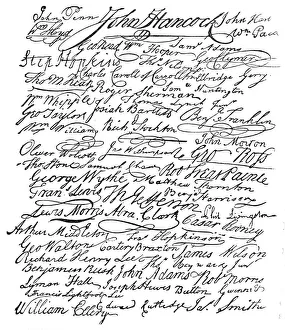 John Penn John Hancock John Hart
Wm Floyd Wm Paca
Geo Read Wm Hooper Saml Adams
Step Hopkins Geo Clymer
Charles Carroll of Carrollton Elbridge Gerry
Tho M:Kean Roger Sherman Saml Huntington
Wm Whipple Thomas Lynch Junr
Geo Taylor Josiah Bartlett Benj Franklin
Wm Williams Richd Stockton John Morton
Oliver Wolcott Jno Witherspoon Geo Ross
Thos Stone Samuel Chase Robt Treat Paine
George Wythe Matthew Thornton
Frans Lewis Th Jefferson Benj Harrison
Lewis Morris Abra Clark Caesar Rodney
Arthur Middleton Fras Hopkinson Phil Livingston
Geo Walton Carter Braxton James Wilson
Richard Henry Lee Heyward Junr
Benjamin Rush John Adams Robt Morris
Lyman Hall Joseph Hewes Button Gwinnett
Francis Lightfoot Lee
William Ellery Edward Rutledge Jas Smith